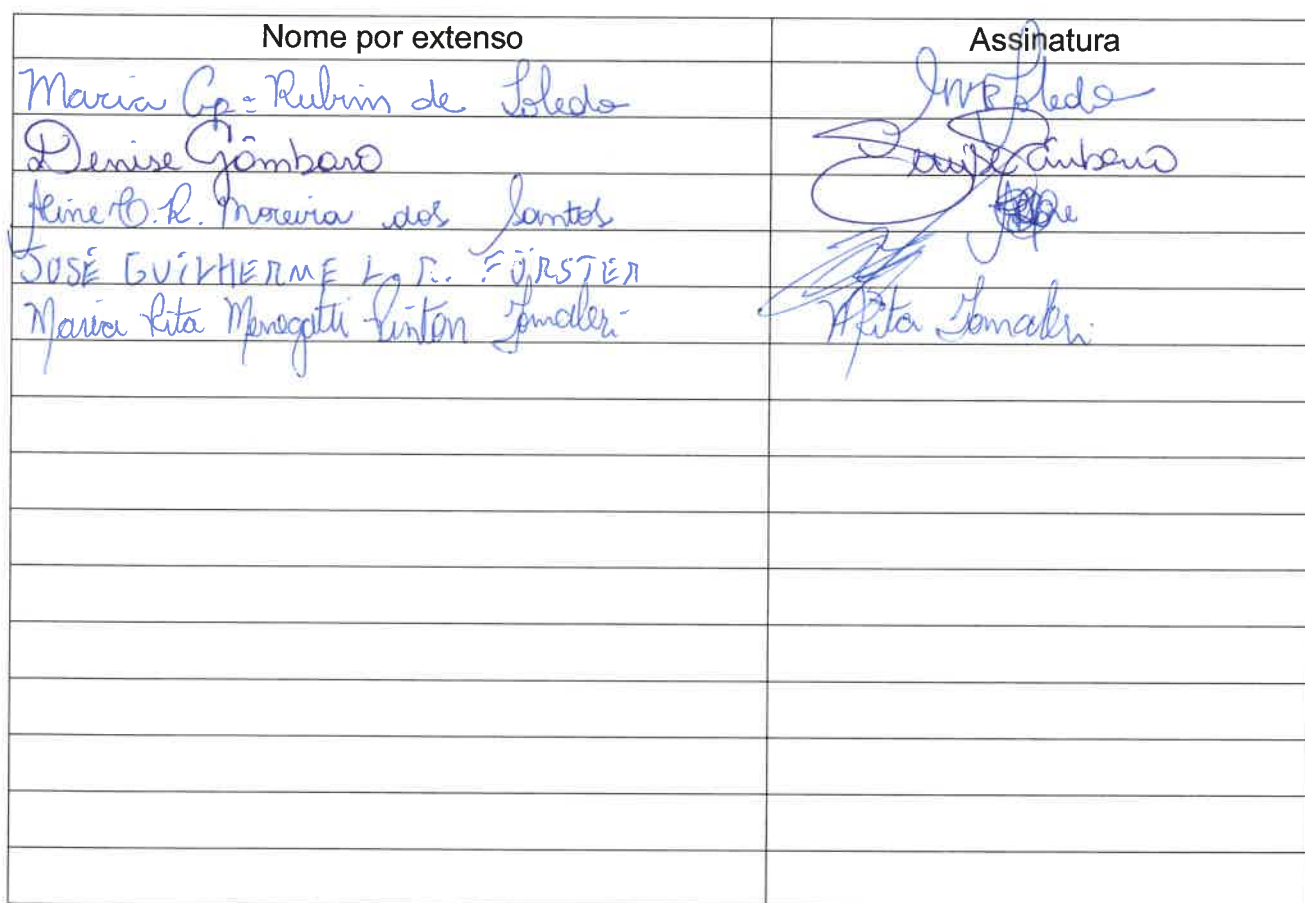 Nome por extenso Assinatura
Maria Cp.ª Rubim de Toledo Toledo
Denise Gâmbaro Denise Gâmbaro
Aline C. R. Moreira dos Santos
JOSÉ GUILHERME L. R. FÖRSTER
Maria Rita Menegatti Pinton Tomaleri MRita Tomaleri